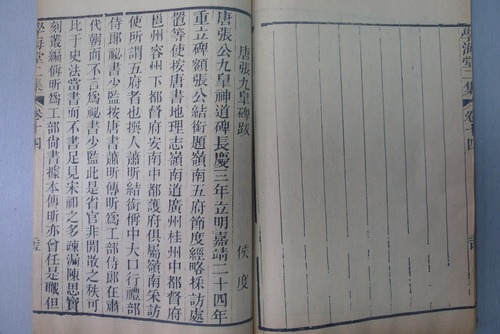 學海堂二集
卷十四
唐張九皋碑跋
侯度
唐張公九皋神道碑長慶三年立明嘉靖二十四年
重立碑額張公結銜題嶺南五府節度經略採訪處
置等使按唐書地理志嶺南道廣州桂州中都督府
邕州容州下都督府安南中都護府俱屬嶺南采訪
使所謂五府者也撰人蕭昕結銜稱中大口行禮部
侍郎祕書少監按唐書蕭昕傳昕為工部侍郎在肅
代朝而不言為祕書少監此是省官非閒散之秩可
比于史法當書而不書足見宋祁之多疎漏陳思寶
刻叢編稱昕為工部尚書據本傳昕亦曾任是職但
學海堂二集
卷十四